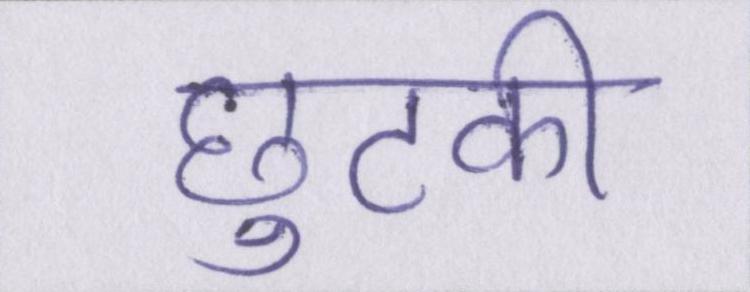 छुटकी